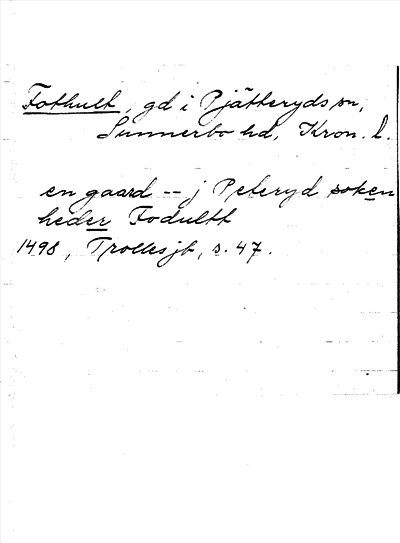 Fothult, gd i Pjätteryds sn,
Sunnerbo hd, Kron. l.
en gaard -- j Peteryd soken
heder Fodultt
1498, Trollesjb, s. 47.